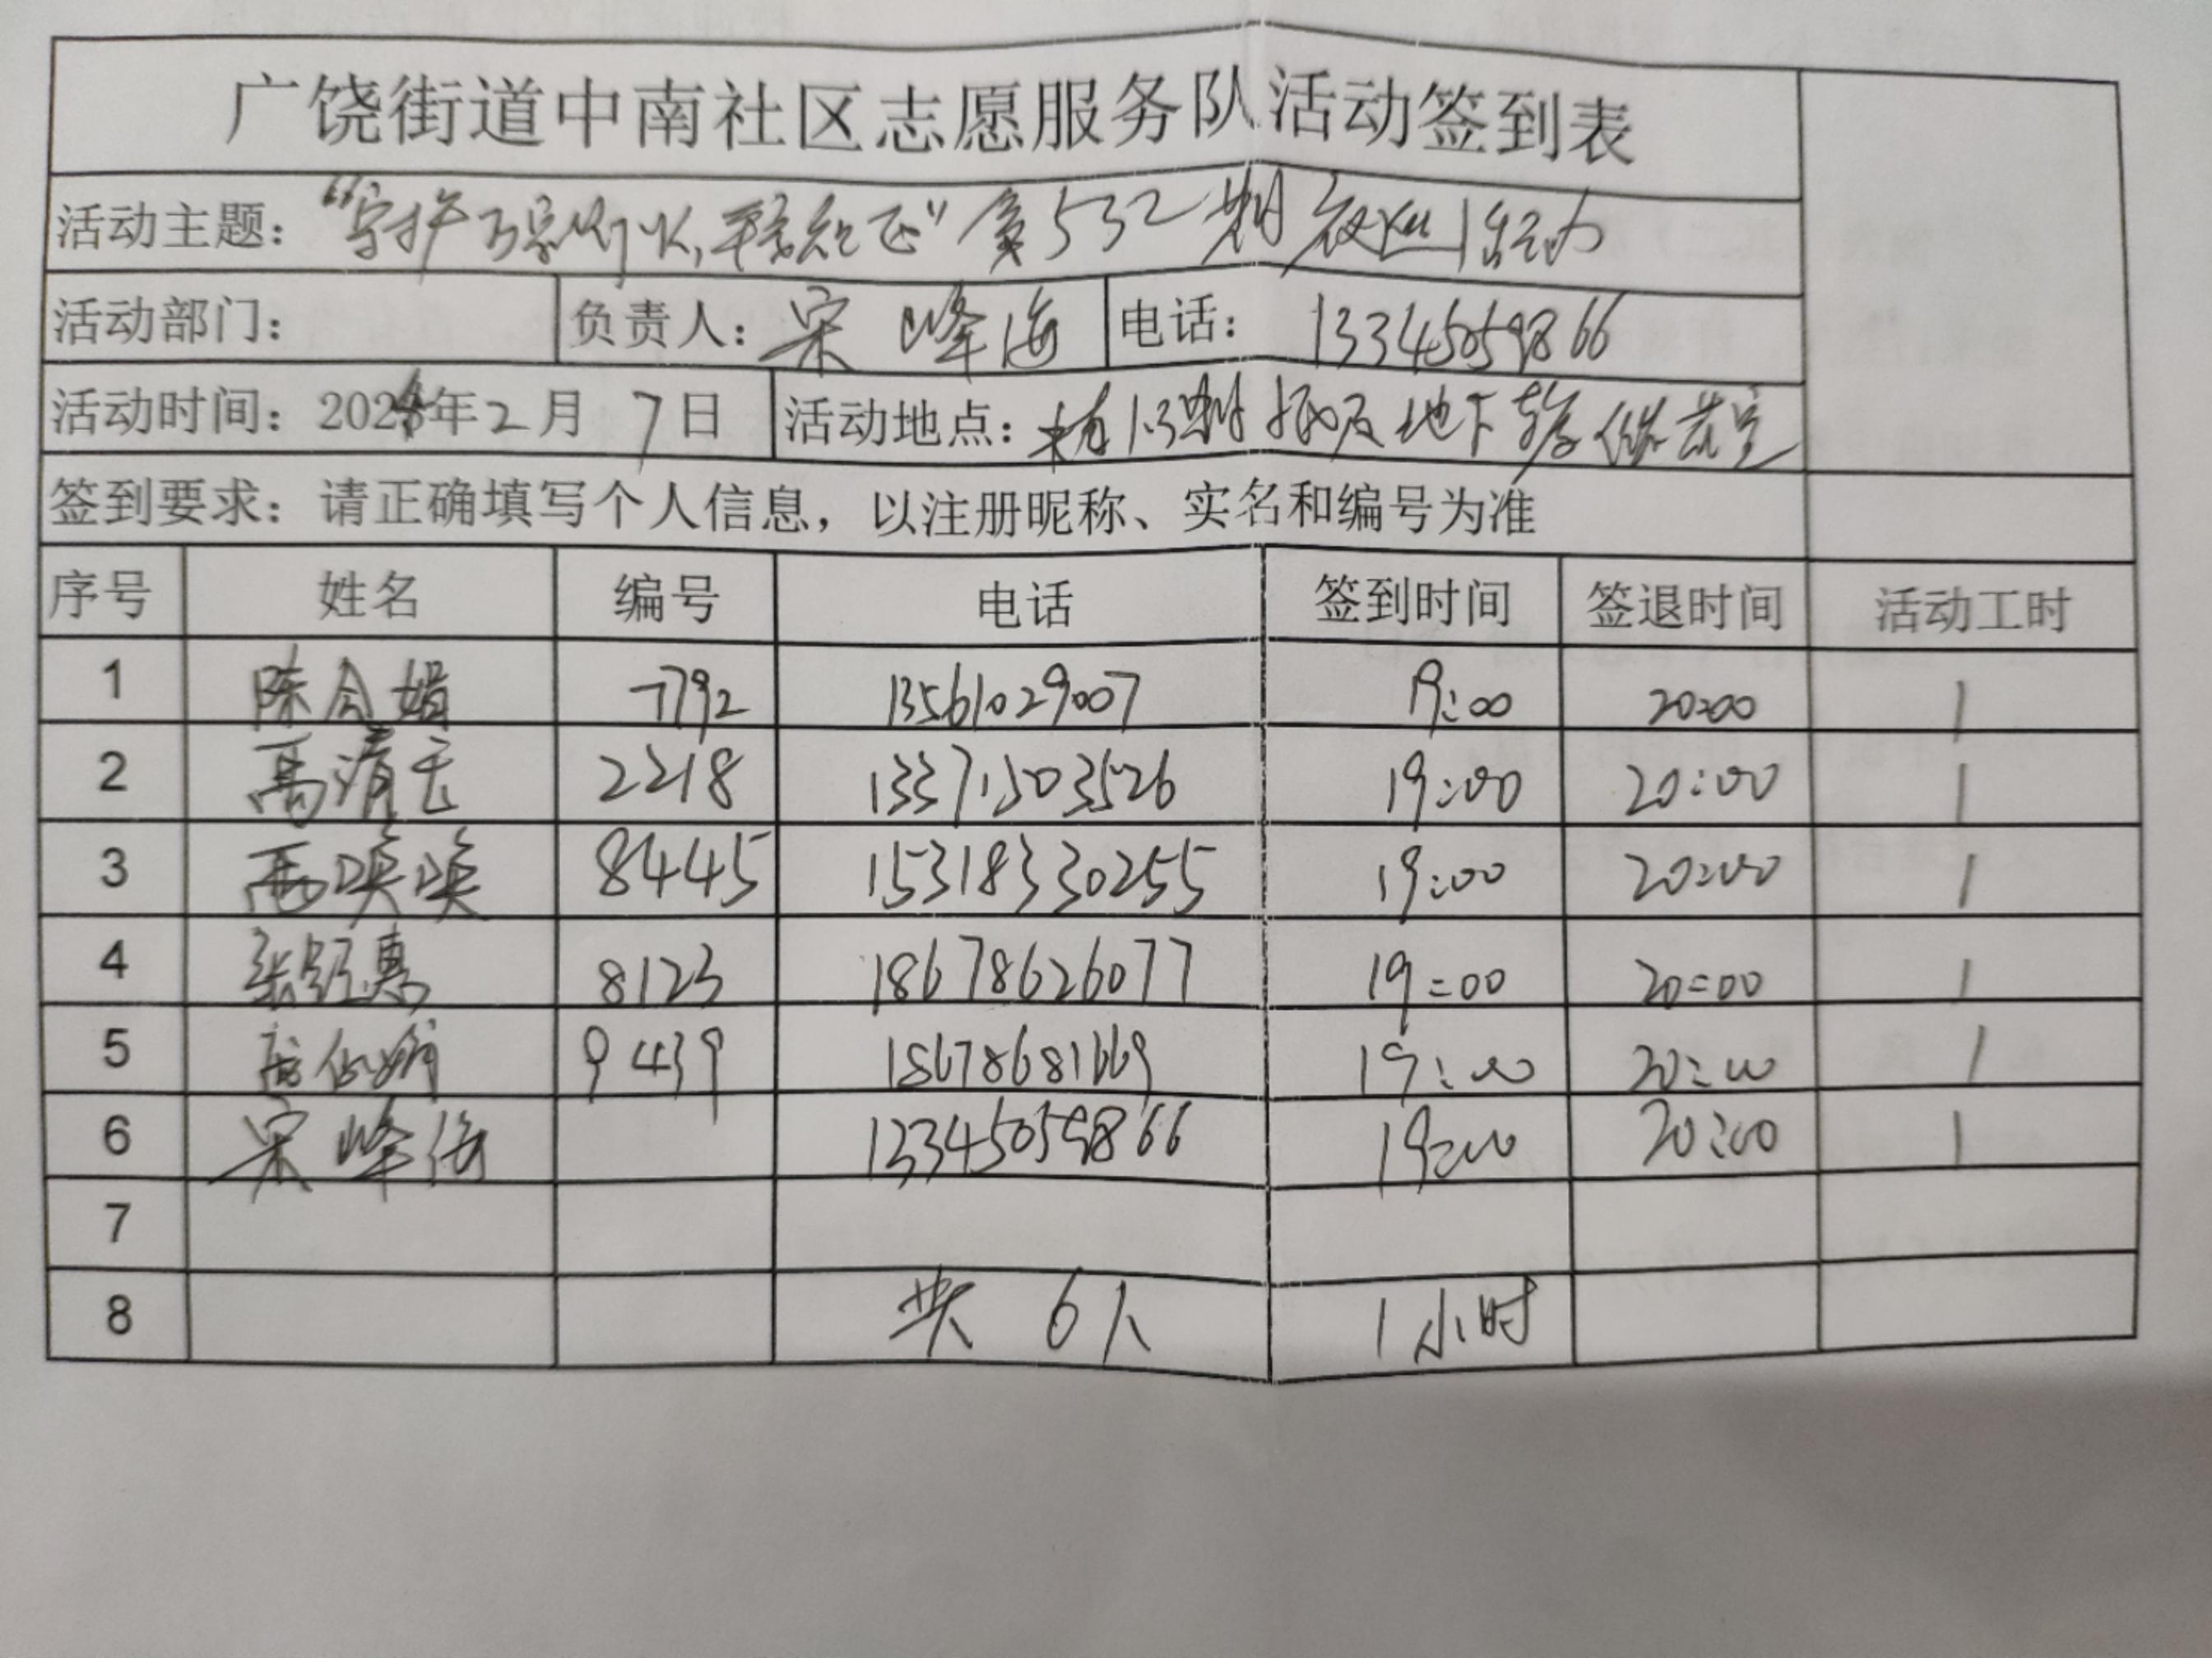 广饶街道中南社区志愿服务队活动签到表
活动主题：“守护万家灯火,平安相伴”第532期夜巡活动
活动部门： 负责人：宋峰海 电话：13345059866
活动时间：2024年2月7日 活动地点： 1.3期 及地下车库
签到要求：请正确填写个人信息，以注册昵称、实名和编号为准
序号 姓名 编号 电话 签到时间 签退时间 活动工时
1 陈令娟 7792 13561029007 19:00 20:00 1
2 高清 2218 13371503526 19:00 20:00 1
3 8445 15318330255 19:00 20:00 1
4 张 惠 8123 18678626077 19:00 20:00 1
5 9439 18678681669 19:00 20:00 1
6 宋峰海 13345059866 19:00 20:00 1
7
8 共6人 1小时